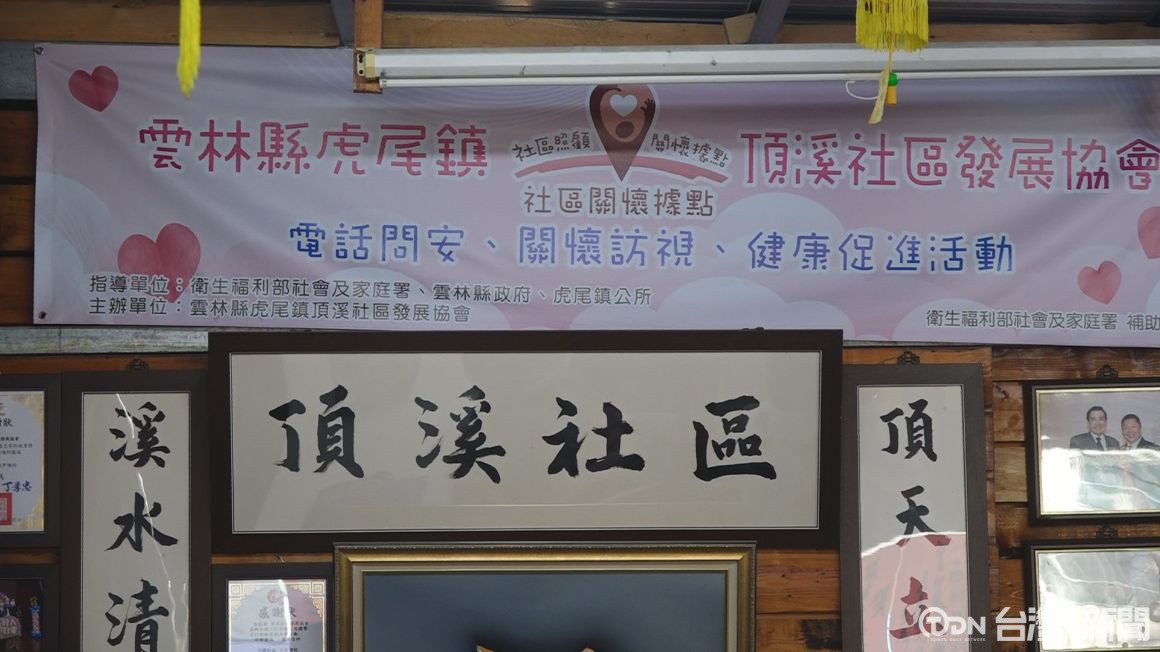 雲林縣虎尾鎮
社區照顧
關懷據點
社區關懷據點
頂溪社區發展協會
電話問安、關懷訪視、健康促進活動
指導單位：衛生福利部社會及家庭署、雲林縣政府、虎尾鎮公所
主辦單位：雲林縣虎尾鎮頂溪社區發展協會
衛生福利部社會及家庭署 補助
頂溪社區
頂天立
溪水清
感謝狀
TDN 台灣新聞